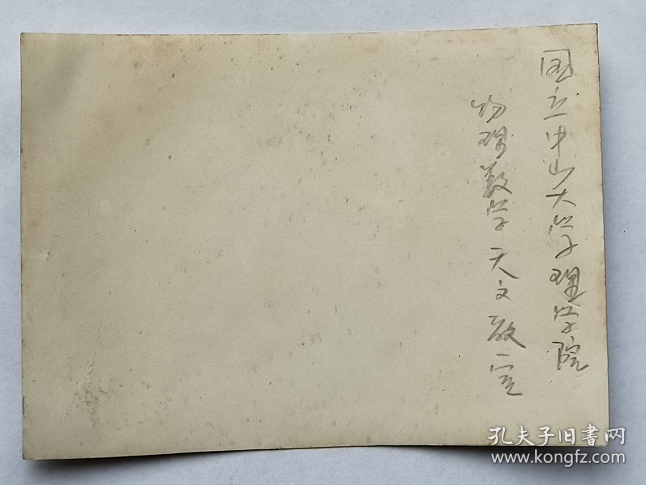 国立中山大学理学院
物理数学天文教室
孔夫子旧书网
kongfz.com